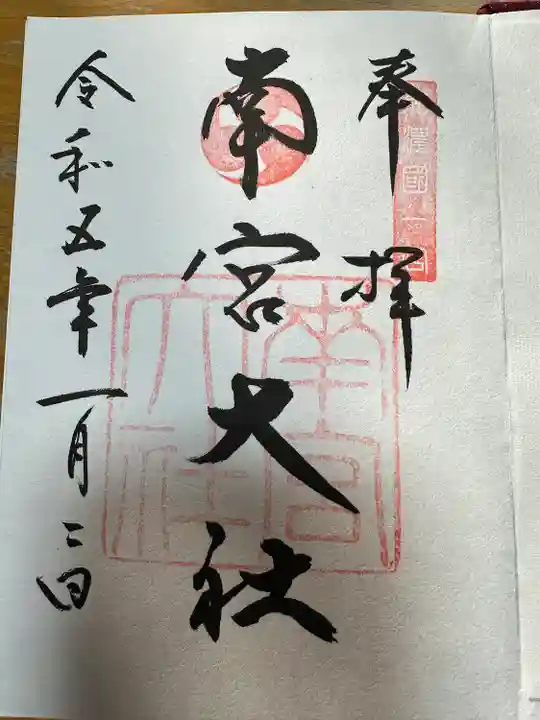 奉拝
美濃國一宮
南宮大社
南宮大社
令和五年一月二日